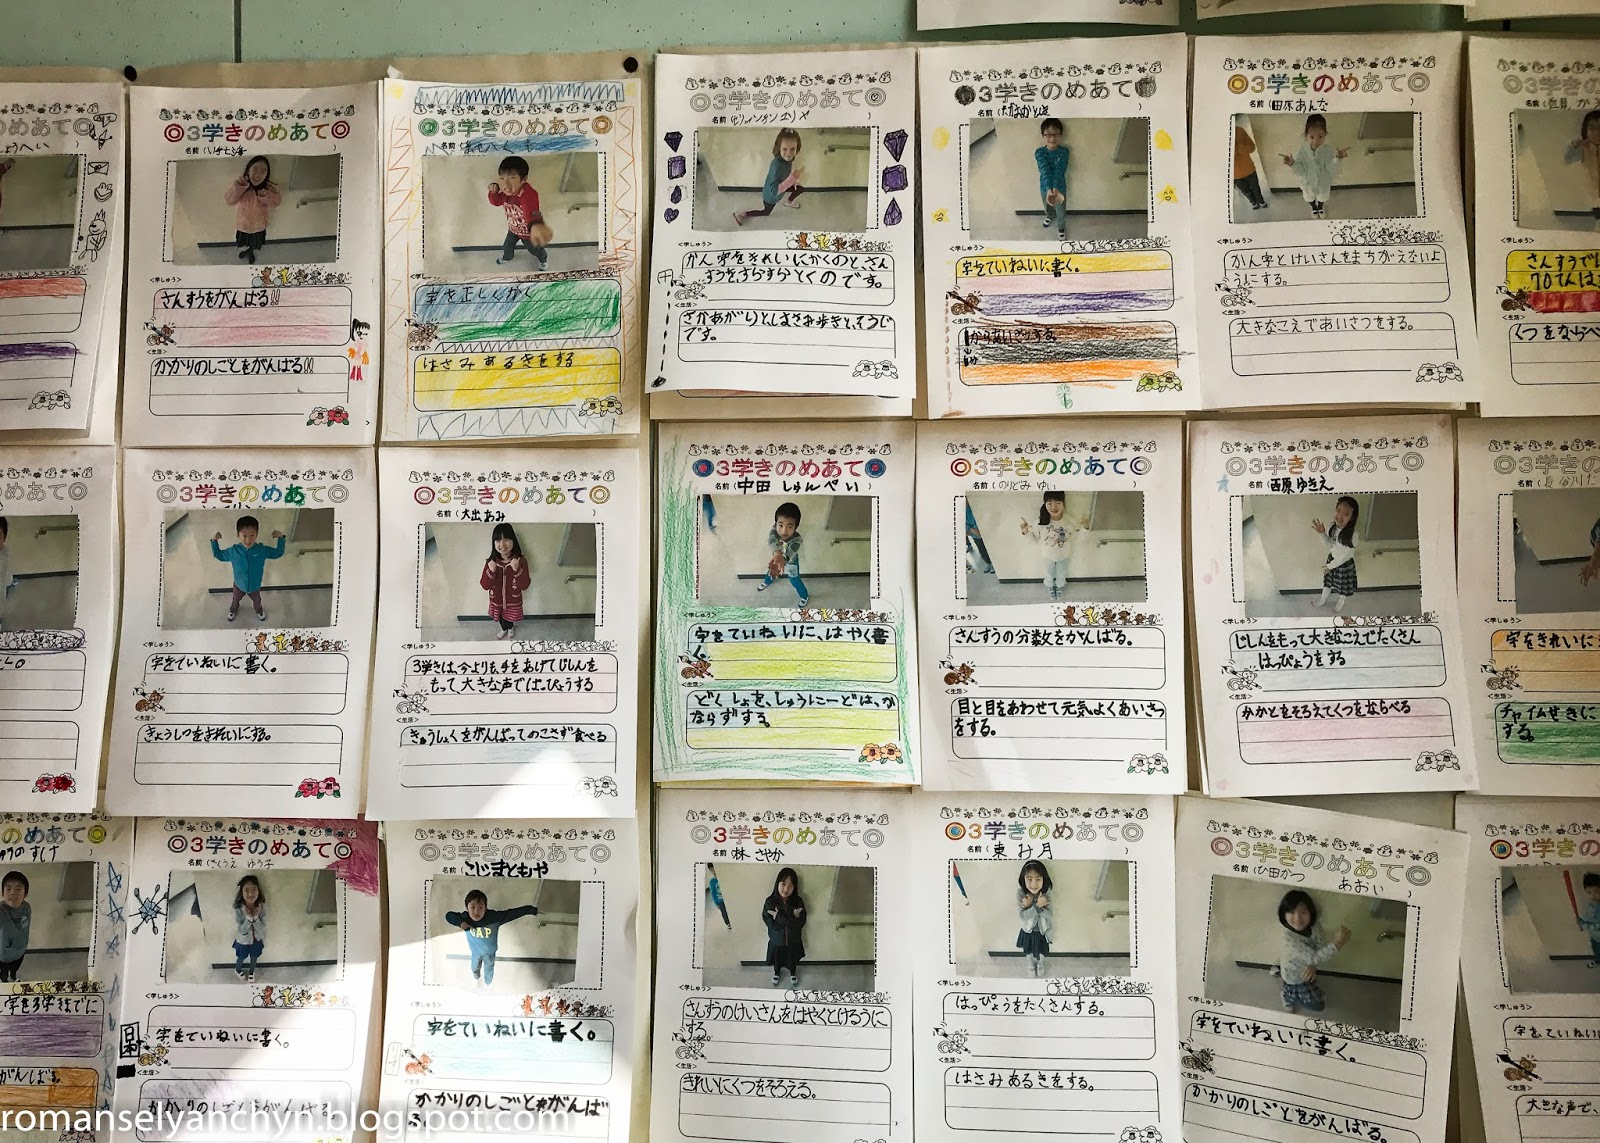 のめあて
3学きのめあて
名前
<学しゅう>
さんすうをがんばる!!
<生活>
かかりのしごとをがんばる!!
3学きのめあて
名前
<学しゅう>
字を正しくかく
<生活>
はさみあるきをする
3学きのめあて
名前
<学しゅう>
かん字をきれいにかくのと、さん
すうを、すらすらとくのです。
<生活>
さかあがりと、しまさお歩きと、そうじ
です。
3学きのめあて
名前
<学しゅう>
字をていねいに書く。
<生活>
3学きのめあて
名前(田原あんな)
<学しゅう>
かん字とけいさんをまちがえないよ
うにする。
<生活>
大きなこえであいさつをする。
さんすうで
くつをならべ
3学きのめあて
名前
<学しゅう>
字をていねいに書く。
<生活>
きょうしつをきれいにする。
3学きのめあて
名前(大出あみ)
<学しゅう>
3学きは、今よりも、手をあげてじしんを
もって、大きな声ではっぴょうする
<生活>
きゅうしょくをがんばってのこさず食べる
3学きのめあて
名前(中田 しゅんぺい)
<学しゅう>
字をていねいに、はやく書
く。
<生活>
どくしょを、しゅうに一どは、か
ならずする。
3学きのめあて
名前(のりとみ ゆい)
<学しゅう>
さんすうの分数をがんばる。
<生活>
目と目をあわせて元気よくあいさつ
をする。
3学きのめあて
名前(西原ゆきえ)
<学しゅう>
じしんをもって大きなこえでたくさん
はっぴょうをする
<生活>
かかとをそろえてくつをならべる
字をきれいに
チャイムせきに
する。
のめあて
字を3学きまでに
がんばる。
3学きのめあて
名前
<学しゅう>
字をていねいに書く。
<生活>
かかりのしごとをがんばる。
日本
3学きのめあて
名前(こじまともや)
<学しゅう>
字をていねいに書く。
<生活>
かかりのしごとをがんば
る。
GAP
3学きのめあて
名前(林 さやか)
<学しゅう>
さんすうのけいさんをはやくとけるうに
する。
<生活>
きれいにくつをそろえる。
3学きのめあて
名前(東 み月)
<学しゅう>
はっぴょうをたくさんする。
<生活>
はさみあるきをする。
3学きのめあて
名前(ひ田かつ あおい)
<学しゅう>
字をていねいに書く。
<生活>
かかりのしごとをがんばる。
3学きの
名前
<学しゅう>
字をていねい
<生活>
大きな声で、
romanselyanchyn.blogspot.com